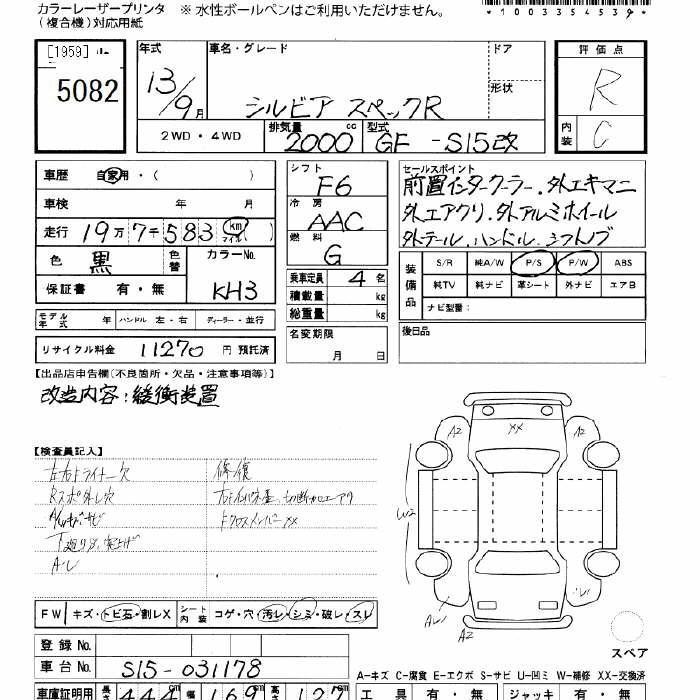 カラーレーザープリンタ ※ 水性ボールペンはご利用いただけません。
(複合機)対応用紙
*1003354539*
[1959]
5082
年式 13/9月
車名・グレード シルビア スペックR
ドア
形状
2WD ・ 4WD
排気量 2000 cc
型式 GF -S15改
評価点 R
内装 C
車歴 自家用・( )
車検 年 月
走行 19万7千583 km マイル( )
色 黒 色替
カラーNo. KH3
保証書 有・無
モデル年式 年 ハンドル 左・右 ディーラー・並行
リサイクル料金 11270 円 預託済
シフト F6
冷房 AAC
燃料 G
乗車定員 4 名
積載量 kg
総重量 kg
名変期限
月 日
セールスポイント
前置インタークーラー、外エキマニ
外エアクリ、外アルミホイール
外テール、ハンドル、シフトノブ
装備品
S/R 純A/W P/S P/W ABS
純TV 純ナビ 革シート 外ナビ エアB
ナビ型番:
後日品
【出品店申告欄(不良箇所・欠品・注意事項等)】
改造内容:緩衝装置
【検査員記入】
左右トライナー欠
Rスポ外し穴
修復
トクロスメンバーXX
A2 XX A2
W2
A2
FW キズ・トビ石・割レX
シート内装 コゲ・穴・汚レ・シミ・破レ・スレ
登録No.
車台No. S15-031178
スペア
A-キズ C-腐食 E-エクボ S-サビ U-凹ミ W-補修 XX-交換済
車庫証明用 長さ 444 cm 169 cm 高さ 127
工具 有・無 ジャッキ 有・無